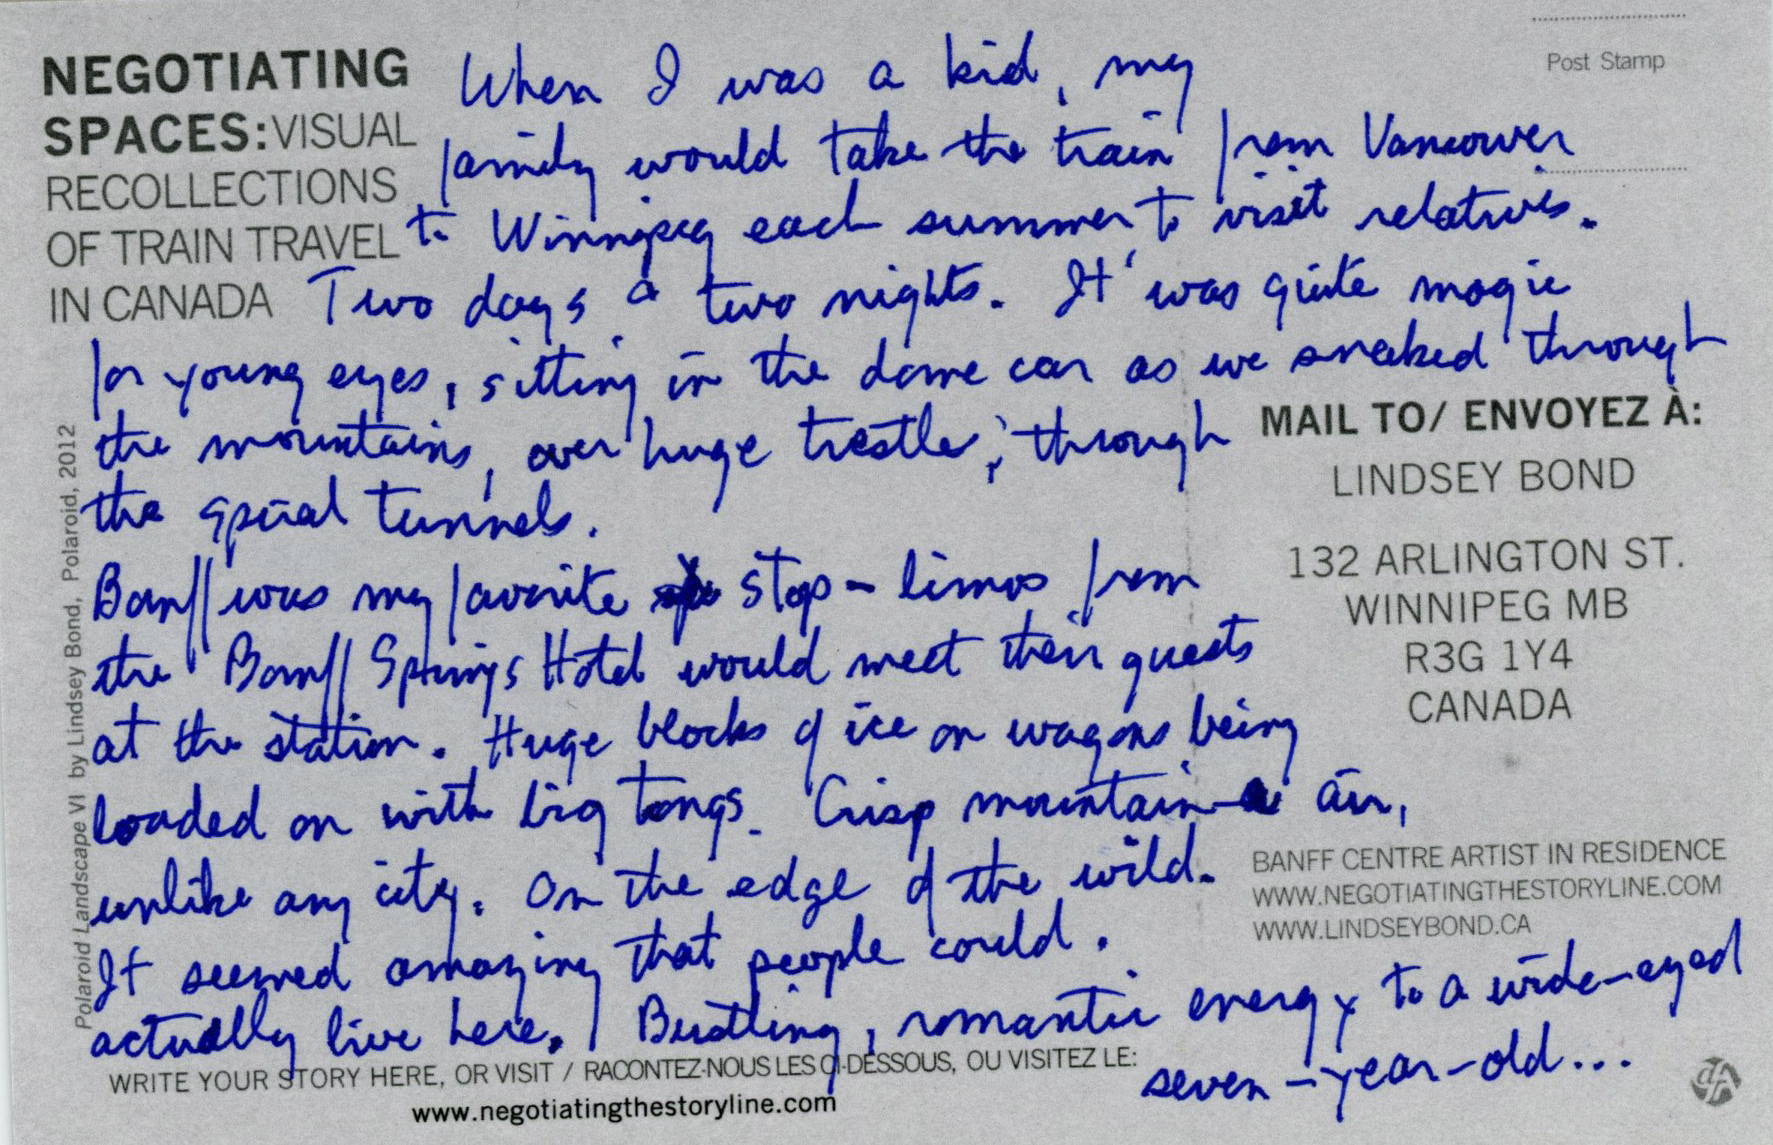 NEGOTIATING
SPACES: VISUAL
RECOLLECTIONS
OF TRAIN TRAVEL
IN CANADA
Post Stamp
When I was a kid, my
family would take the train from Vancouver
to Winnipeg each summer to visit relatives.
Two days & two nights. It was quite magic
for young eyes, sitting in the dome car as we snaked through
the mountains, over huge trestles, through
the spiral tunnels.
Banff was my favorite stop – limos from
the Banff Springs Hotel would meet their guests
at the station. Huge blocks of ice on wagons being
loaded on with big tongs. Crisp mountain air,
unlike any city. On the edge of the wild.
It seemed amazing that people could
actually live here. Bustling, romantic energy to a wide-eyed
seven-year-old...
MAIL TO/ ENVOYEZ À:
LINDSEY BOND
132 ARLINGTON ST.
WINNIPEG MB
R3G 1Y4
CANADA
BANFF CENTRE ARTIST IN RESIDENCE
WWW.NEGOTIATINGTHESTORYLINE.COM
WWW.LINDSEYBOND.CA
Polaroid Landscape VI by Lindsey Bond, Polaroid, 2012
WRITE YOUR STORY HERE, OR VISIT / RACONTEZ-NOUS LES CI-DESSOUS, OU VISITEZ LE:
www.negotiatingthestoryline.com